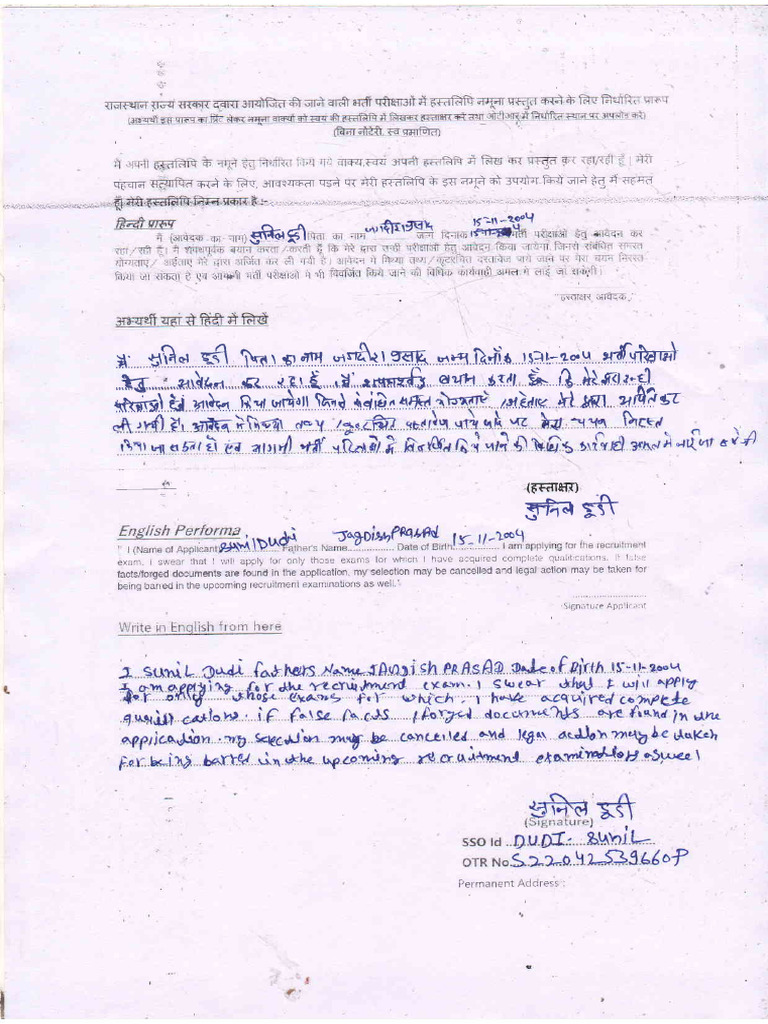 राजस्थान राज्य सरकार द्वारा आयोजित की जाने वाली भर्ती परीक्षाओं में हस्तलिपि नमूना प्रस्तुत करने के लिए निर्धारित प्रारूप
(अभ्यर्थी इस प्रारूप का प्रिंट लेकर नमूना वाक्यों को स्वयं की हस्तलिपि में लिखकर हस्ताक्षर करे तथा ओटीआर में निर्धारित स्थान पर अपलोड करें)
(बिना नोटेरी, स्व प्रमाणित)
मैं अपनी हस्तलिपि के नमूने हेतु निर्धारित किये गये वाक्य,स्वयं अपनी हस्तलिपि में लिख कर प्रस्तुत कर रहा/रही हूँ। मेरी
पहचान सत्यापित करने के लिए, आवश्यकता पडने पर मेरी हस्तलिपि के इस नमूने को उपयोग किये जाने हेतु में सहमत
हूँ। मेरी हस्तलिपि निम्न प्रकार है :-
हिन्दी प्रारूप
15-11-2004
मैं (आवेदक का नाम) सुनिल डूडी पिता का नाम जगदीश प्रसाद जन्म दिनांक भर्ती परीक्षाओं हेतु आवेदन कर
रहा/रही हूँ। मैं शपथपूर्वक बयान करता/करती हूँ कि मेरे द्वारा उन्ही परीक्षाओं हेतु आवेदन किया जायेगा जिनसे संबंधित समस्त
योग्यताएं/ अर्हताएं मेरे द्वारा अर्जित कर ली गयी है। आवेदन में मिथ्या तथ्य/कूटरचित दस्तावेज पाये जाने पर मेरा चयन निरस्त
किया जा सकता है एवं आगामी भर्ती परीक्षाओं में भी विवर्जित किये जाने की विधिक कार्यवाही अमल में लाई जा सकेगी।
हस्ताक्षर आवेदक
अभ्यर्थी यहां से हिंदी में लिखें
मैं सुनिल डूडी पिता का नाम जगदीश प्रसाद जन्म दिनाँक 15-11-2004 भर्ती परिक्षाओ
हेतु आवेदन कर रहा हूँ मैं बयान करता हूँ कि मेरे द्वारा उन्ही
हेतु आवेदन किया जायेगा जिनसे संबंधित समस्त योग्यताएं / मेरे द्वारा अर्जित कर
ली गयी है। आवेदन मे मिथ्या तथ्य / पाये जाने पर मेरा चयन निरस्त
किया जा सकता है एवं आगामी भर्ती में किये जाने की कार्यवाही अमल मे लाई जा सकेगी
(हस्ताक्षर)
सुनिल डूडी
English Performa
" I (Name of Applicant) Sunil Dudi Father's Name Jagdish PRASAD Date of Birth 15-11-2004 I am applying for the recruitment
exam. I swear that I will apply for only those exams for which I have acquired complete qualifications. If false
facts/forged documents are found in the application, my selection may be cancelled and legal action may be taken for
being barred in the upcoming recruitment examinations as well."
Signature Applicant
Write in English from here
I Sunil Dudi fathers Name JAGDish PRASAD Date of Birth 15-11-2004
I am applying for the recruitment exam. I swear that I will apply
for only those exams for which I have acquired complete
qualifications. if false facts /forged documents are found in the
application. my selection may be cancelled and legal action may be taken
for being barred in the upcoming recruitment
सुनिल डूडी
(Signature)
SSO Id DUDI- SUNIL
OTR No. S22042539660P
Permanent Address :